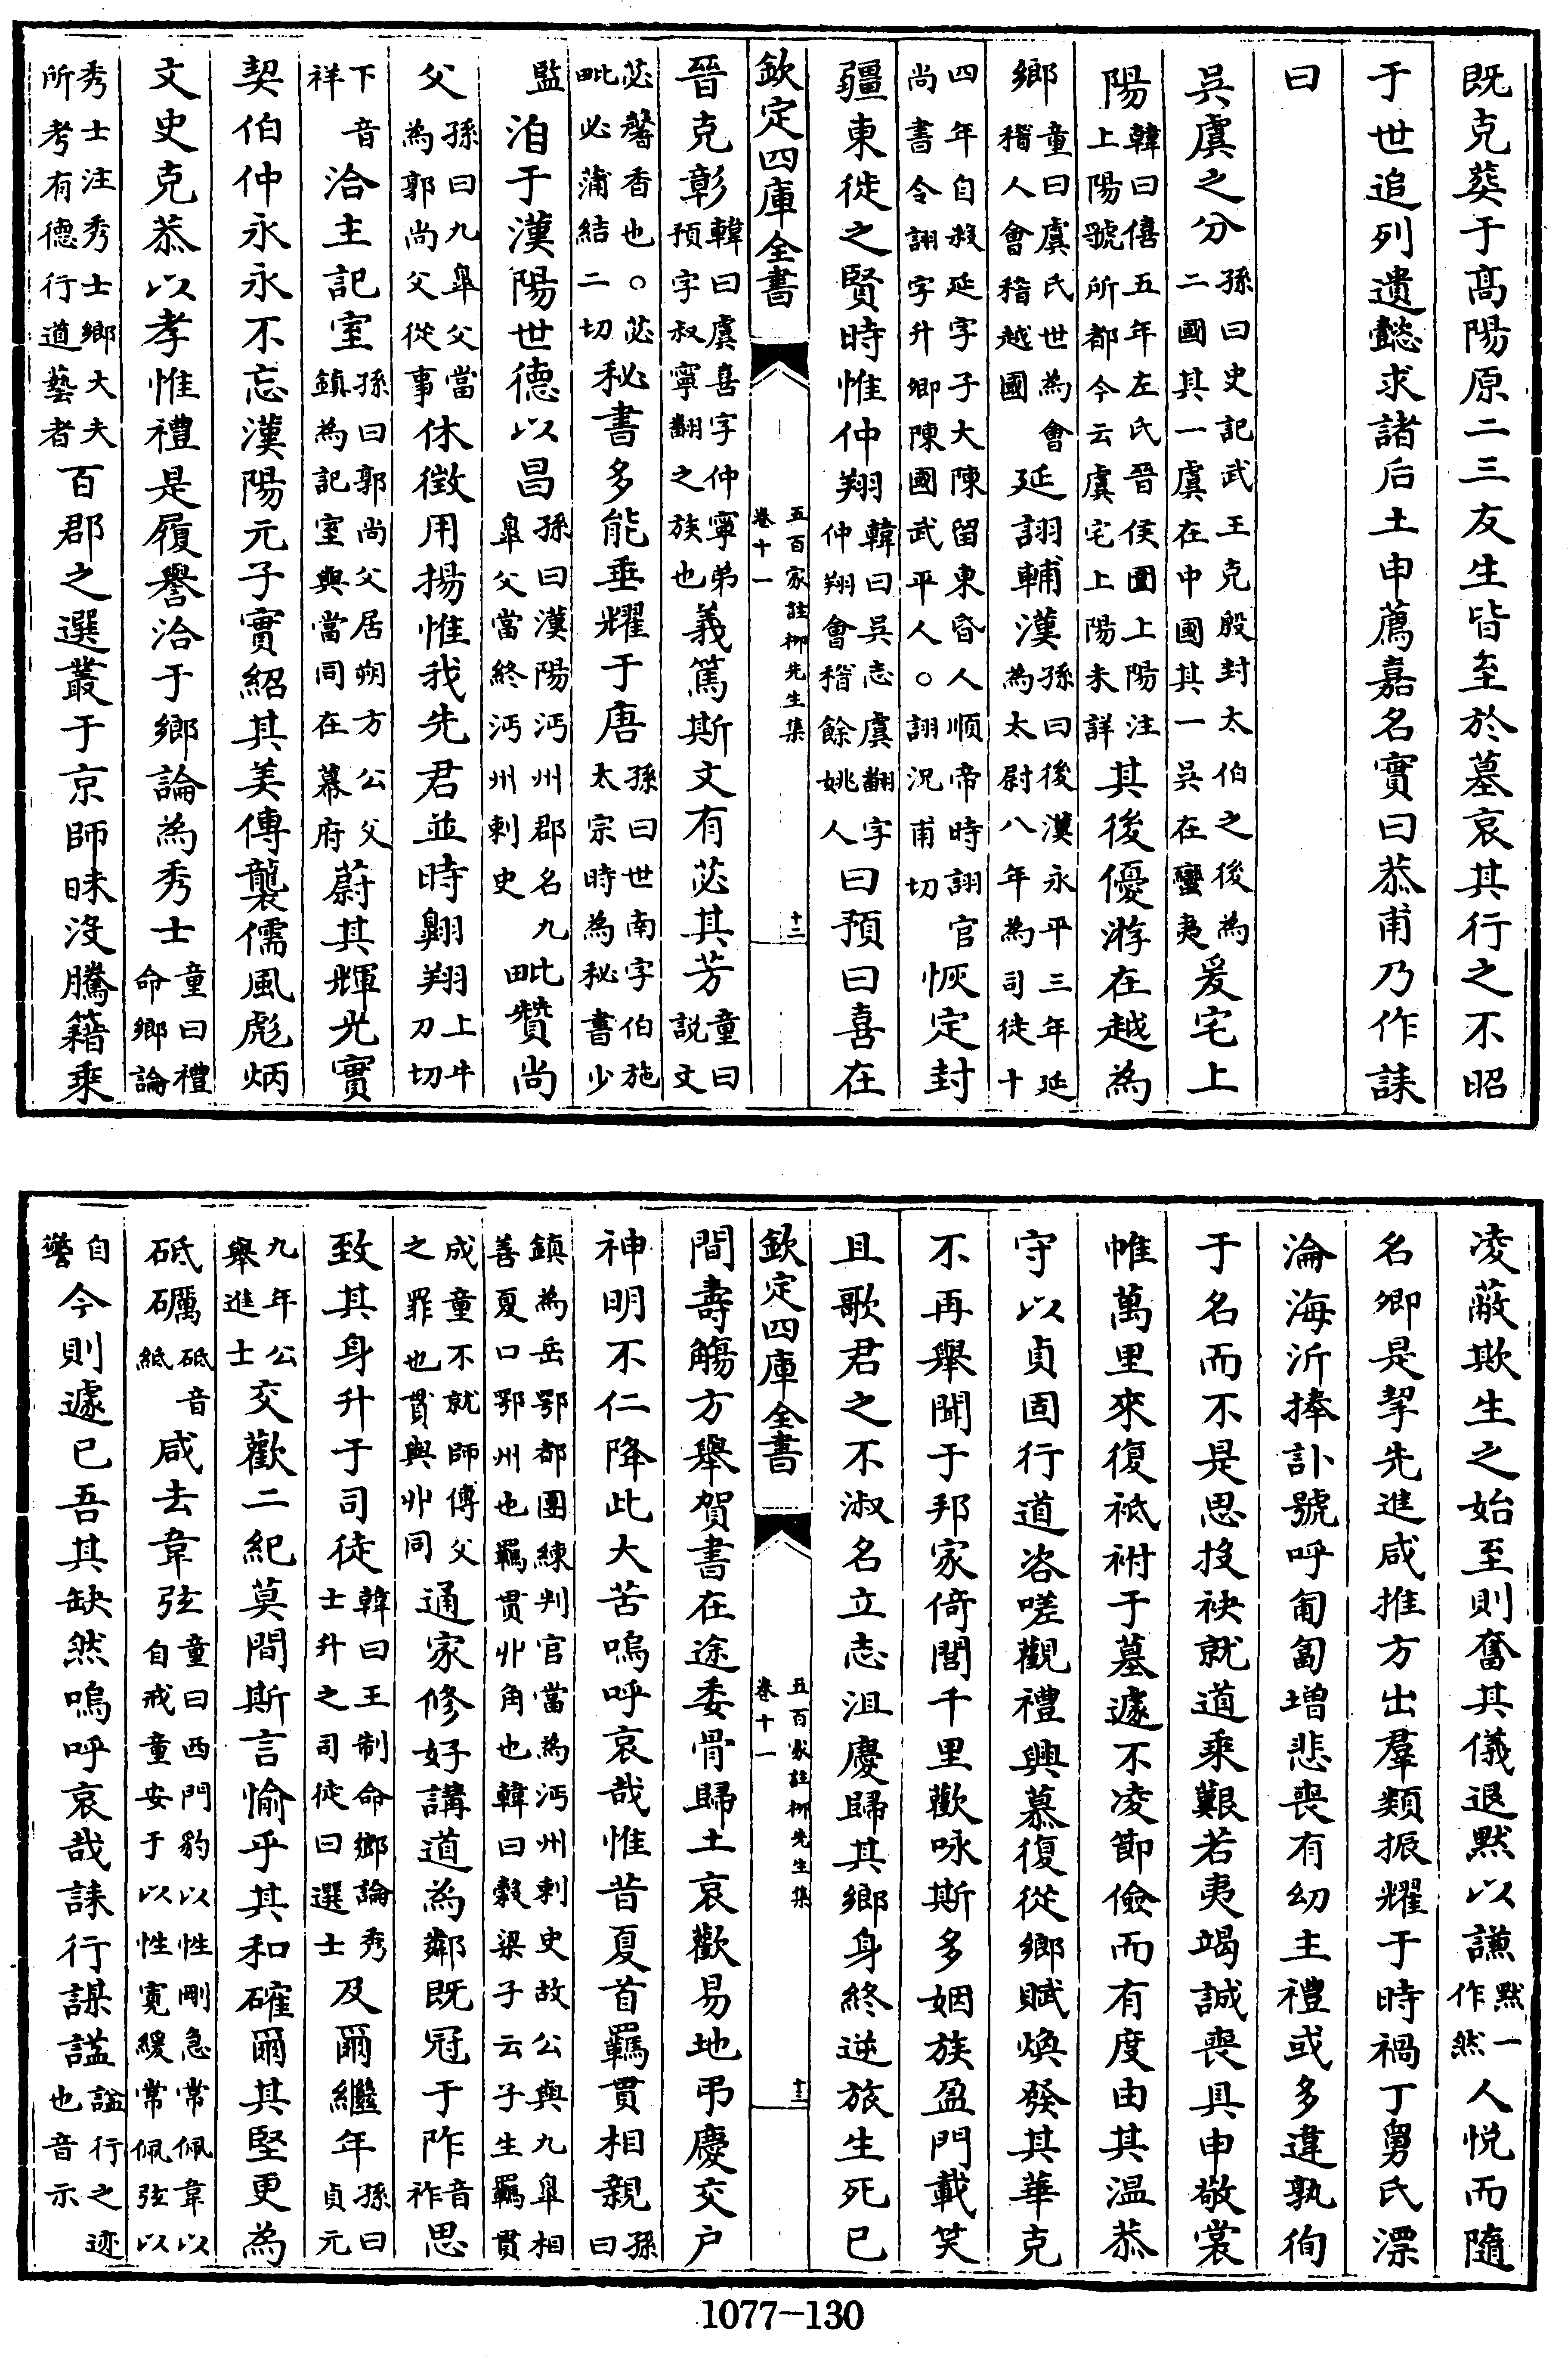 既克葬于高陽原二三友生皆至於墓哀其行之不昭
于世追列遺懿求諸后土申薦嘉名實曰恭甫乃作誄
曰
吳虞之分孫曰史記武王克殷封太伯之後為二國其一虞在中國其一吳在蠻夷爰宅上
陽韓曰僖五年左氏晉侯圍上陽注上陽虢所都今云虞宅上陽未詳其後優游在越為
鄉童曰虞氏世為會稽人會稽越國延詡輔漢孫曰後漢永平三年延為太尉八年為司徒十
四年自殺延字子大陳留東昏人順帝時詡官尚書令詡字升卿陳國武平人○詡況甫切恢定封
疆東徙之賢時惟仲翔韓曰吳志虞翻字仲翔會稽餘姚人曰預曰喜在
欽定四庫全書 五百家註柳先生集卷十一 十二
晉克彰韓曰虞喜字仲寧弟預字叔寧翻之族也義篤斯文有苾其芳童曰說文
苾馨香也○苾毗必蒲結二切秘書多能垂耀于唐孫曰世南字伯施太宗時為秘書少
監洎于漢陽世德以昌孫曰漢陽沔州郡名九皐父當終沔州刺史毗贊尚
父孫曰九皐父當為郭尚父從事休徵用揚惟我先君並時翶翔上牛刀切
下音祥洽主記室孫曰郭尚父居朔方公父鎮為記室與當同在幕府蔚其輝光實
契伯仲永永不忘漢陽元子實紹其美傳襲儒風彪炳
文史克恭以孝惟禮是履譽洽于鄉論為秀士童曰禮命鄉論
秀士注秀士鄉大夫所考有德行道藝者百郡之選叢于京師昧沒騰籍乘
凌蔽欺生之始至則奮其儀退默以謙默一作然人悅而隨
名卿是挈先進咸推方出羣類振耀于時禍丁舅氏漂
淪海沂捧訃號呼匍匐增悲喪有幼主禮或多違孰徇
于名而不是思投袂就道乘艱若夷竭誠喪具申敬裳
帷萬里來復祗祔于墓遽不凌節儉而有度由其温恭
守以貞固行道咨嗟觀禮興慕復從鄉賦煥發其華克
不再舉聞于邦家倚閭千里歡咏斯多姻族盈門載笑
且歌君之不淑名立志沮慶歸其鄉身終逆旅生死已
欽定四庫全書 五百家註柳先生集卷十一 十三
間壽觴方舉賀書在途委骨歸土哀歡易地弔慶交戶
神明不仁降此大苦嗚呼哀哉惟昔夏首羈貫相親孫曰
鎮為岳鄂都團練判官當為沔州刺史故公與九皐相善夏口鄂州也羈貫丱角也韓曰穀梁子云子生羈貫
成童不就師傅父之罪也貫與丱同通家修好講道為鄰既冠于阼音祚思
致其身升于司徒韓曰王制命鄉論秀士升之司徒曰選士及爾繼年孫曰貞元
九年公舉進士交歡二紀莫間斯言愉乎其和確爾其堅更為
砥礪砥音紙咸去韋弦童曰西門豹以性剛急常佩韋以自戒童安于以性寛緩常佩弦以
自警今則遽已吾其缺然嗚呼哀哉誄行謀謚謚行之迹也音示
1077-130